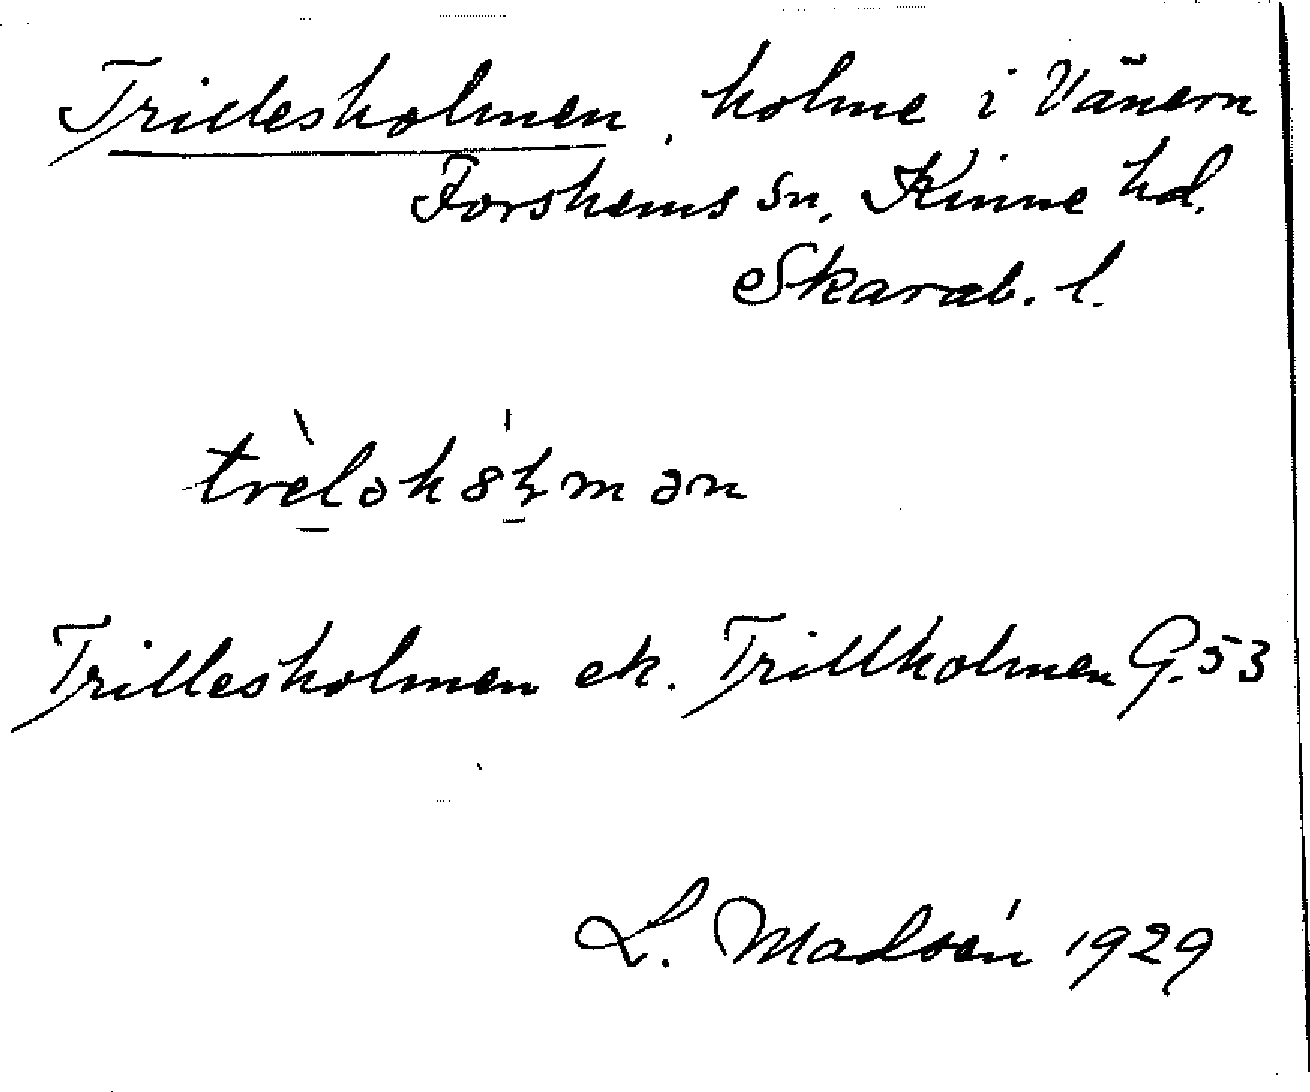 Trillesholmen, holme i Vänern
Forshems sn, Kinne hd.
Skarab. l.
Trillesholmen ek. Trillholmen G. 53
L. Madsén 1929